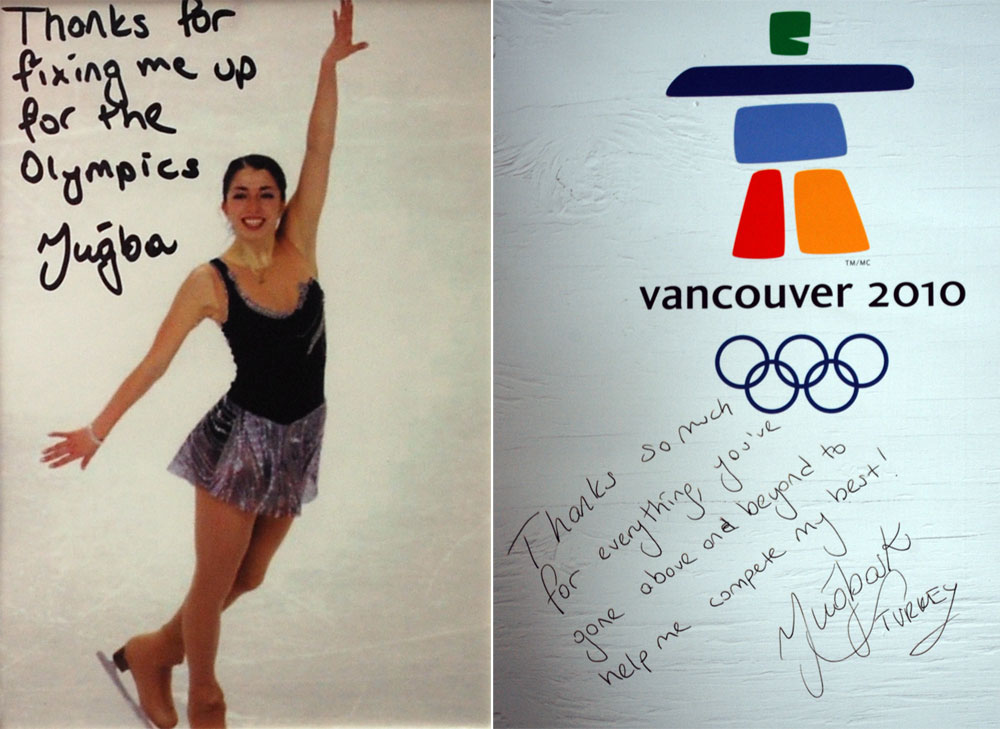 Thanks for
fixing me up
for the
Olympics
Tuğba
TM/MC
vancouver 2010
Thanks so much
for everything, you've
gone above and beyond to
help me compete my best!
Tuğba K
TURKEY